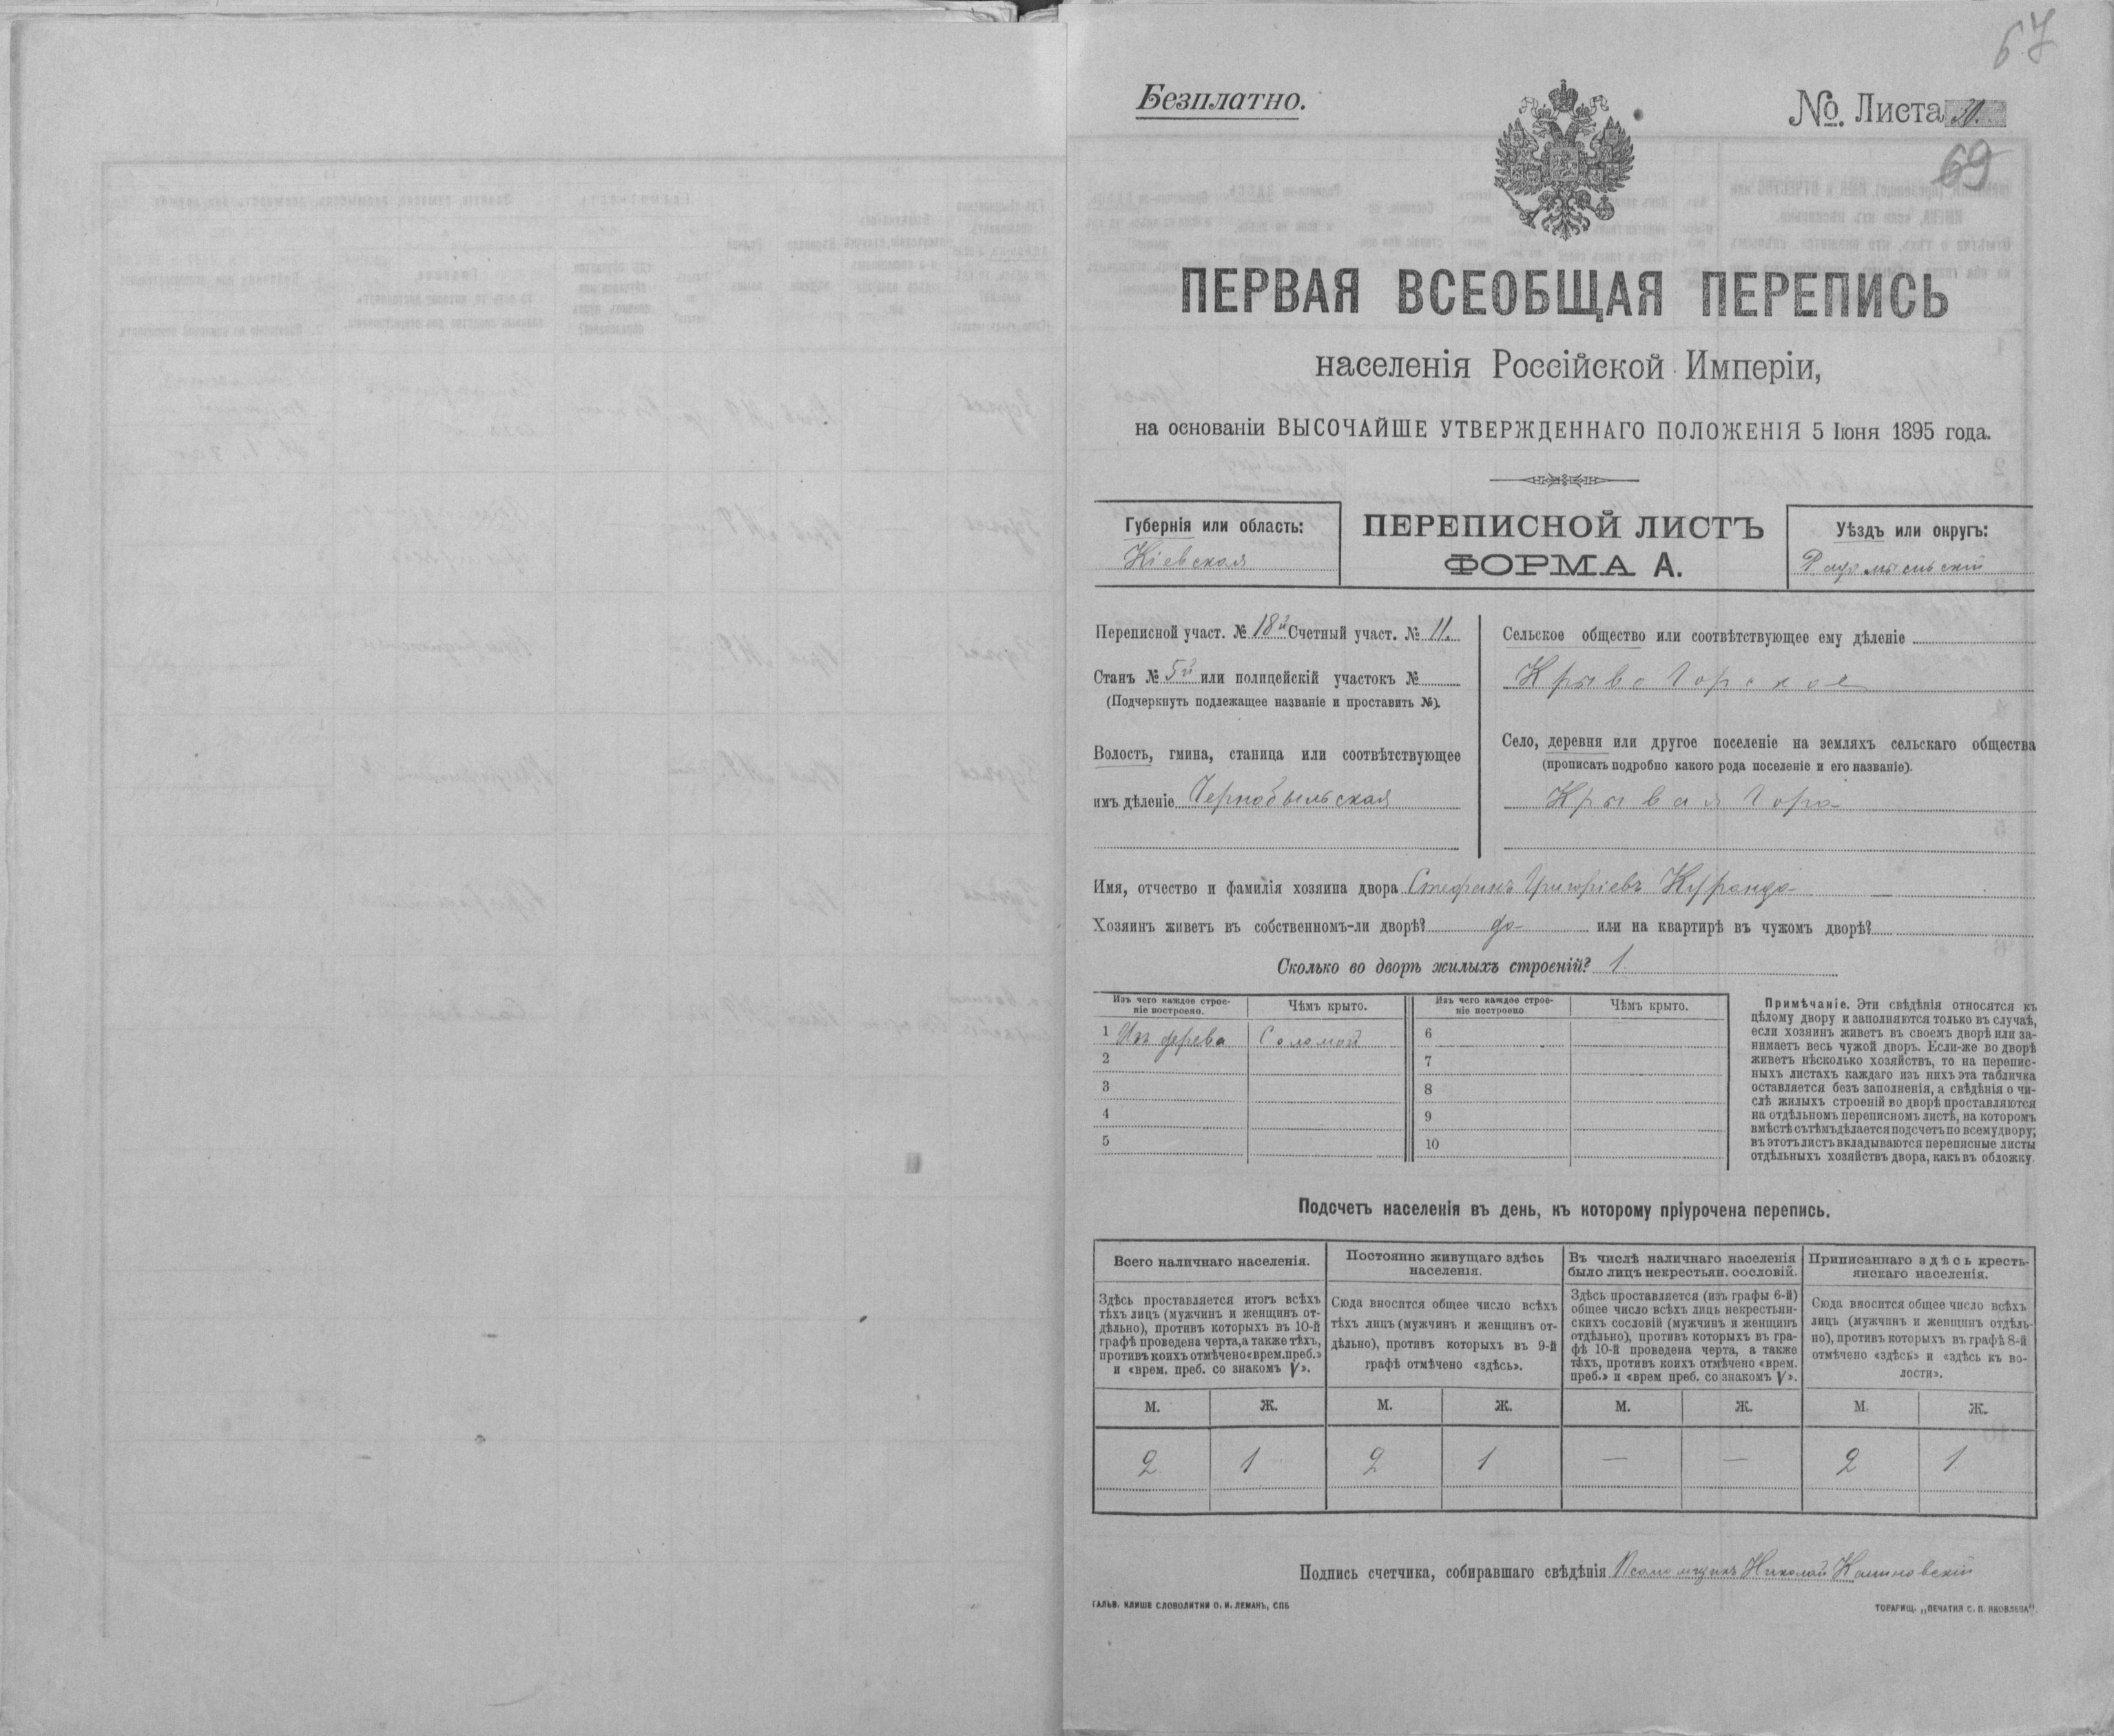 67
Безплатно.
№ Листа 30.
69
ПЕРВАЯ ВСЕОБЩАЯ ПЕРЕПИСЬ
населенія Россійской Имперіи,
на основаніи ВЫСОЧАЙШЕ УТВЕРЖДЕННАГО ПОЛОЖЕНІЯ 5 Іюня 1895 года.
Губернія или область:
Кіевская
ПЕРЕПИСНОЙ ЛИСТЪ
ФОРМА А.
Уѣздъ или округъ:
Радомысльскій
Переписной участ. № 18й Счетный участ. № 11.
Станъ № 5й или полицейскій участокъ №
(Подчеркнуть подлежащее названіе и проставить №).
Волость, гмина, станица или соотвѣтствующее
имъ дѣленіе Чернобыльская
Сельское общество или соотвѣтствующее ему дѣленіе
Крывогорское
Село, деревня или другое поселеніе на земляхъ сельскаго общества
(прописать подробно какого рода поселеніе и его названіе).
Крывая Гора
Имя, отчество и фамилія хозяина двора Стефанъ Григоріевъ Куранда
Хозяинъ живетъ въ собственномъ-ли дворѣ? да или на квартирѣ въ чужомъ дворѣ?
Сколько во дворѣ жилыхъ строеній? 1
Изъ чего каждое строе-
ніе построено.
Чѣмъ крыто.
Изъ чего каждое строе-
ніе построено
Чѣмъ крыто.
1 Изъ дерева Соломой 6
2 7
3 8
4 9
5 10
Примѣчаніе. Эти свѣдѣнія относятся къ
цѣлому двору и заполняются только въ случаѣ,
если хозяинъ живетъ въ своемъ дворѣ или за-
нимаетъ весь чужой дворъ. Если-же во дворѣ
живетъ нѣсколько хозяйствъ, то на перепис-
ныхъ листахъ каждаго изъ нихъ эта табличка
оставляется безъ заполненія, а свѣдѣнія о чи-
слѣ жилыхъ строеній во дворѣ проставляются
на отдѣльномъ переписномъ листѣ, на которомъ
вмѣстѣ съ тѣмъ дѣлается подсчетъ по всему двору;
въ этотъ листъ вкладываются переписные листы
отдѣльныхъ хозяйствъ двора, какъ въ обложку.
Подсчетъ населенія въ день, къ которому пріурочена перепись.
Всего наличнаго населенія.
Здѣсь проставляется итогъ всѣхъ
тѣхъ лицъ (мужчинъ и женщинъ от-
дѣльно), противъ которыхъ въ 10-й
графѣ проведена черта, а также тѣхъ,
противъ коихъ отмѣчено «врем. преб.»
и «врем. преб. со знакомъ V».
Постоянно живущаго здѣсь
населенія.
Сюда вносится общее число всѣхъ
тѣхъ лицъ (мужчинъ и женщинъ от-
дѣльно), противъ которыхъ въ 9-й
графѣ отмѣчено «здѣсь».
Въ числѣ наличнаго населенія
было лицъ некрестьян. сословій.
Здѣсь проставляется (изъ графы 6-й)
общее число всѣхъ лицъ некрестьян-
скихъ сословій (мужчинъ и женщинъ
отдѣльно), противъ которыхъ въ гра-
фѣ 10-й проведена черта, а также
тѣхъ, противъ коихъ отмѣчено «врем.
преб.» и «врем преб. со знакомъ V».
Приписаннаго здѣсь кресть-
янскаго населенія.
Сюда вносится общее число всѣхъ
лицъ (мужчинъ и женщинъ отдѣль-
но), противъ которыхъ въ графѣ 8-й
отмѣчено «здѣсь» и «здѣсь къ во-
лости».
М. Ж. М. Ж. М. Ж. М. Ж.
2 1 2 1 — — 2 1
Подпись счетчика, собиравшаго свѣдѣнія Псаломщикъ Николай Калиновскій
ГАЛЬВ. КЛИШЕ СЛОВОЛИТНИ О. И. ЛЕМАНЪ, СПБ
ТОВАРИЩ. „ПЕЧАТНЯ С. П. ЯКОВЛЕВА".